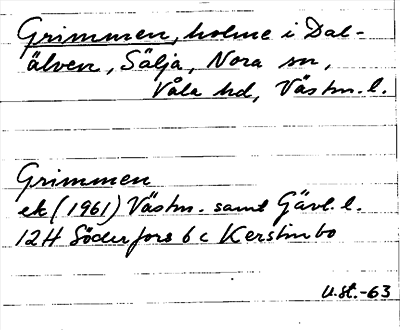 Grimmen, holme i Dal-
älven, Sälja, Nora sn,
Våla hd, Västm. l.
Grimmen
ek (1961) Västm. samt Gävl. l.
12H Söderfors 6 c Kerstinbo
U.st.-63